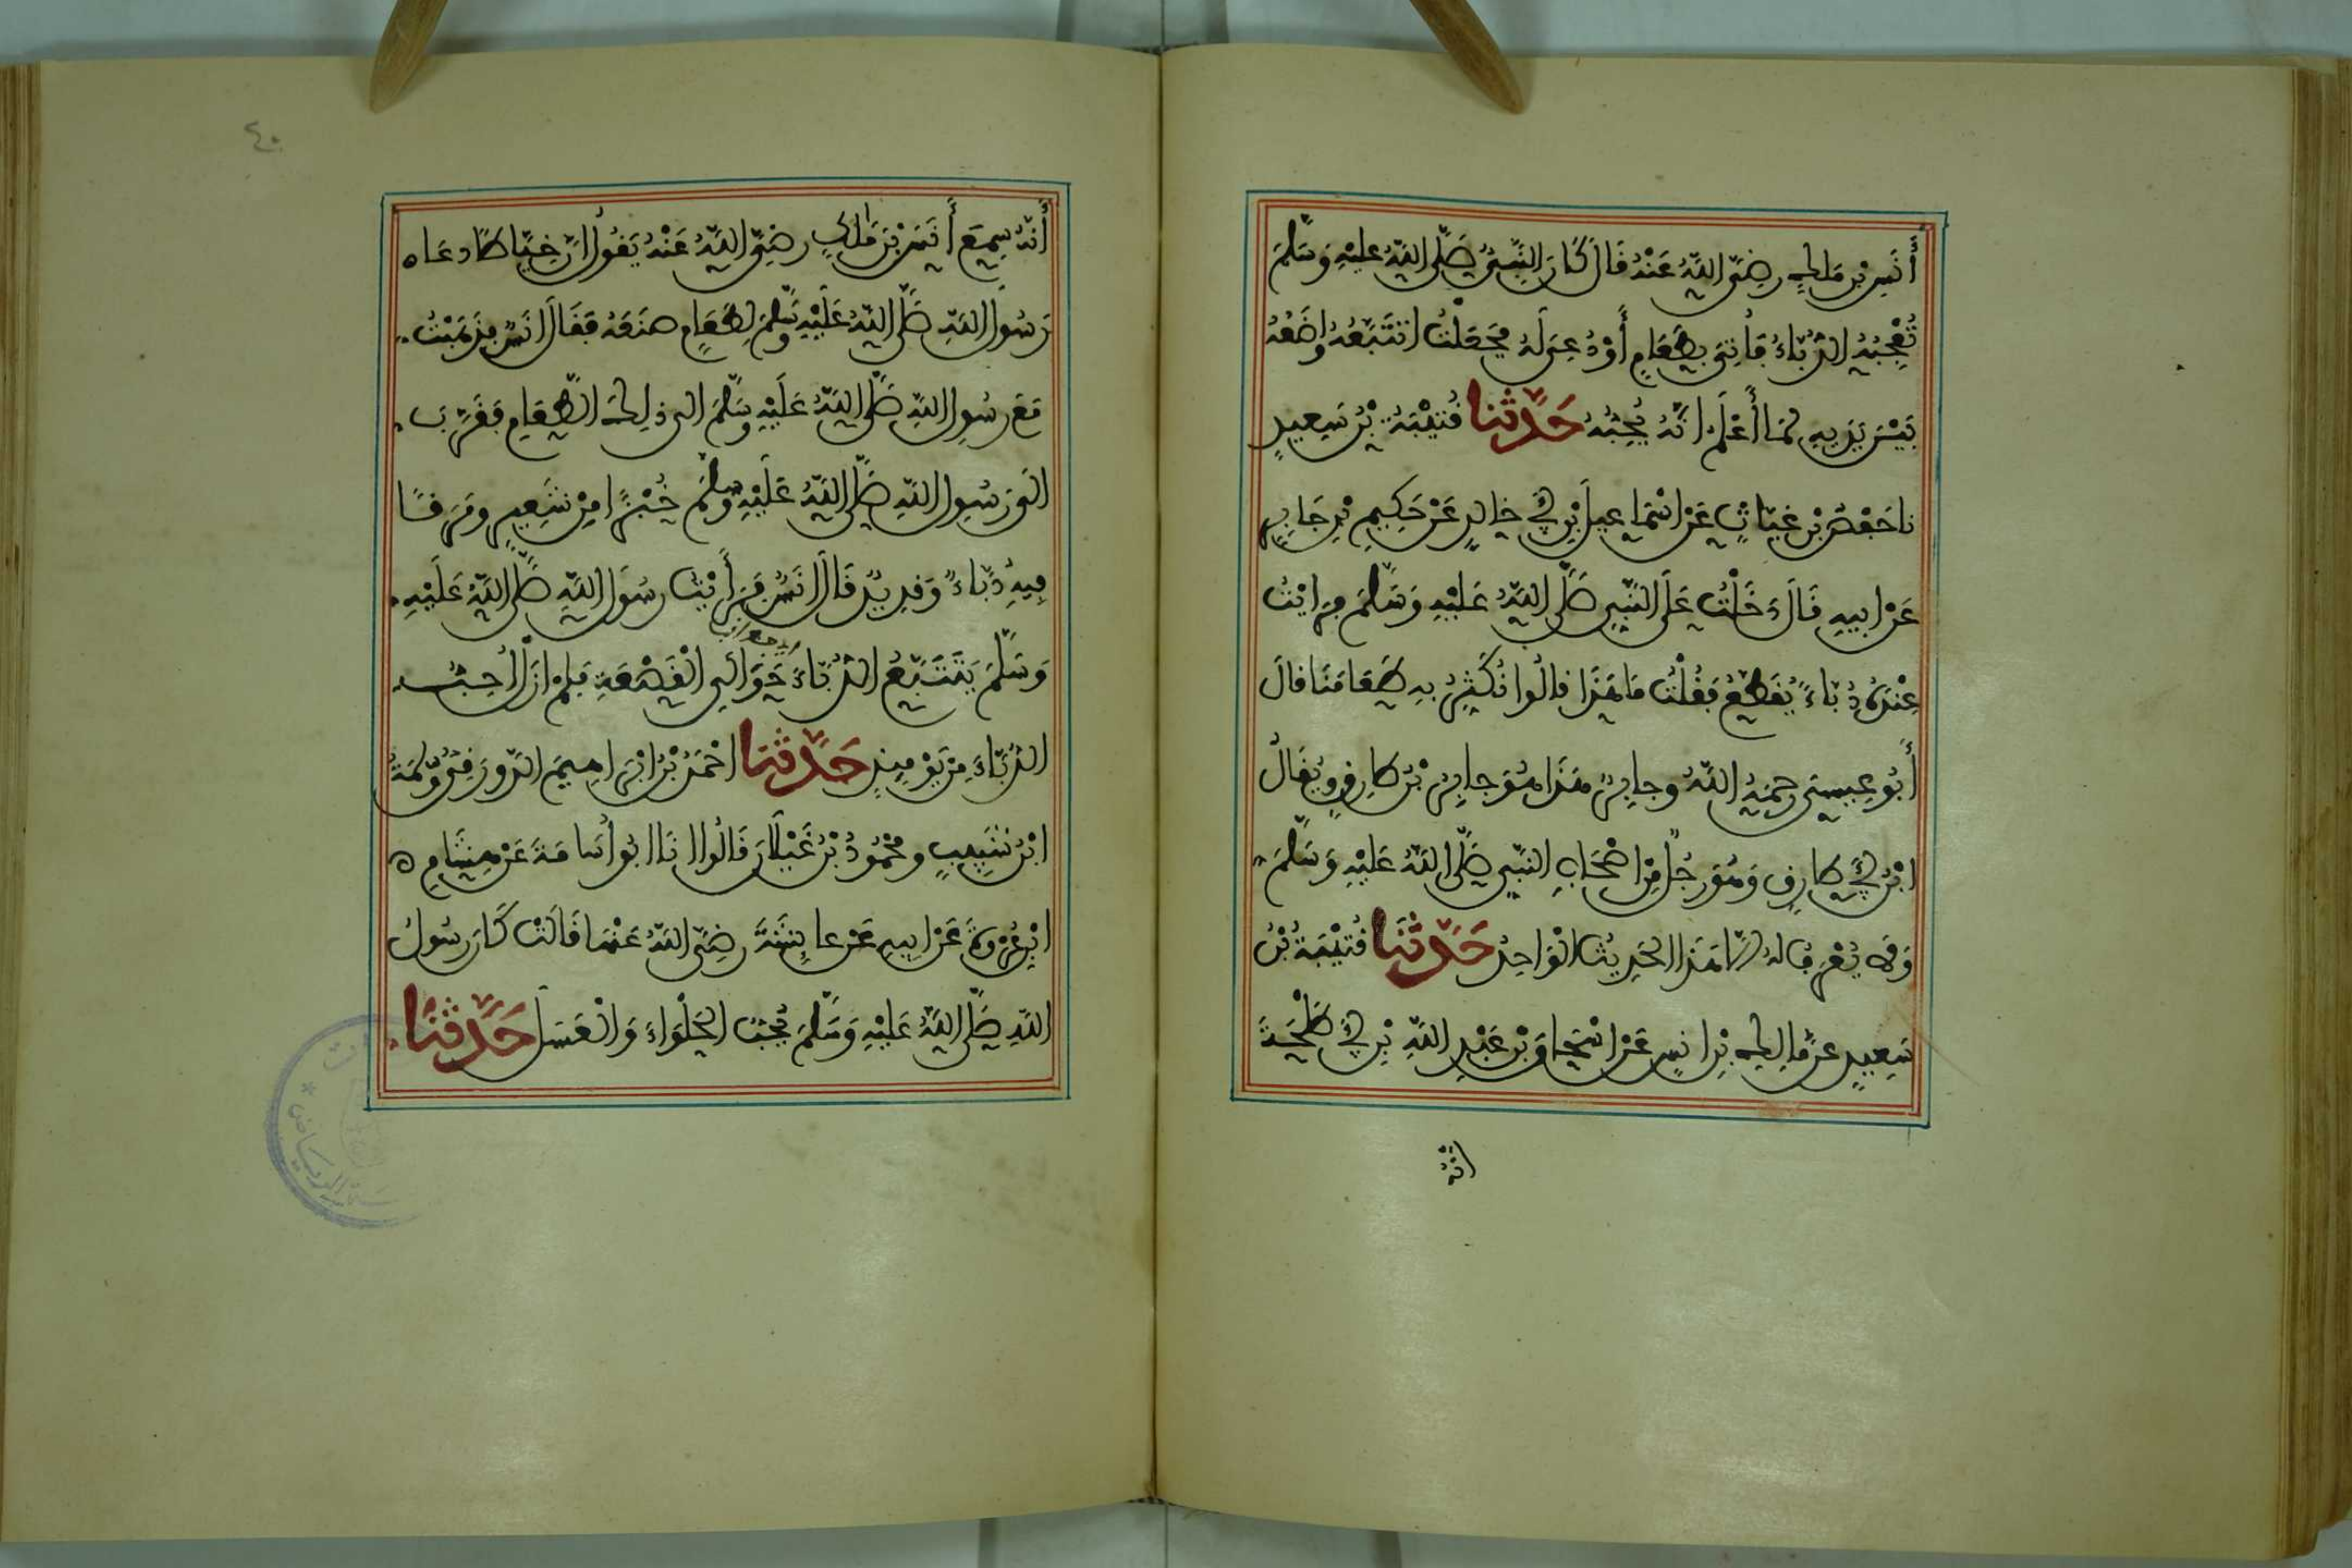 أَنَسِ بْنِ مَالِكٍ رَضِيَ اللَّهُ عَنْهُ قَالَ كَانَ النَّبِيُّ صَلَّى اللَّهُ عَلَيْهِ وَسَلَّمَ
تُعْجِبُهُ الدُّبَّاءُ فَأُتِيَ بِطَعَامٍ أَوْ دُعِيَ لَهُ فَجَعَلْتُ أَتَتَبَّعُهُ وَاضَعُهُ
بَيْنَ يَدَيْهِ لِمَا أَعْلَمُ انَّهُ يُحِبُّهُ حَدَّثَنَا قُتَيْبَةُ بْنُ سَعِيدٍ
نا حَفْصُ بْنُ غِيَاثٍ عَنِ اسْمَاعِيلَ بْنِ أَبِي خَالِدٍ عَنْ حَكِيمِ بْنِ جَابِرٍ
عَنْ ابِيهِ قَالَ دَخَلْتُ عَلَى النَّبِيِ صَلَّى اللَّهُ عَلَيْهِ وَسَلَّمَ فَرَايْتُ
عِنْدَهُ دُبَّاءً يُقَطَّعُ فَقُلْتُ مَا هَذَا قَالُوا نُكَثِّرُ بِهِ طَعَامَنَا قَالَ
أَبُو عِيسَى رَحِمَهُ اللَّهُ وَجَابِرٌ هَذَا هُوَ جَابِرُ بْنُ طَارِقٍ وَيُقَالُ
ابْنُ أَبِي طَارِقٍ وَهُوَ رَجُلٌ مِنْ اصْحَابِ النَّبِيِ صَلَّى اللَّهُ عَلَيْهِ وَسَلَّمَ
وَلَا يُعْرَفُ لَهُ الَّا هَذَا الْحَدِيثُ الْوَاحِدُ حَدَّثَنَا قُتَيْبَةُ بْنُ
سَعِيدٍ عَنْ مَالِكِ بْنِ انَسٍ عَنْ اسْحَاقَ بْنِ عَبْدِ اللَّهِ بْنِ أَبِي طَلْحَةَ
انَّهُ
٤٠
أَنَّهُ سَمِعَ أَنَسَ بْنَ مَالِكٍ رَضِيَ اللَّهُ عَنْهُ يَقُولُ انَّ خَيَّاطًا دَعَا
رَسُولَ اللَّهِ صَلَّى اللَّهُ عَلَيْهِ وَسَلَّمَ لِطَعَامٍ صَنَعَهُ فَقَالَ انَسٌ فَذَهَبْتُ
مَعَ رَسُولِ اللَّهِ صَلَّى اللَّهُ عَلَيْهِ وَسَلَّمَ الَى ذَلِكَ الطَّعَامِ فَقَرَّبَ
الَى رَسُولِ اللَّهِ صَلَّى اللَّهُ عَلَيْهِ وَسَلَّمَ خُبْزًا مِنْ شَعِيرٍ وَمَرَقًا
فِيهِ دُبَّاءٌ وَقَدِيدٌ قَالَ انَسٌ فَرَأَيْتُ رَسُولَ اللَّهِ صَلَّى اللَّهُ عَلَيْهِ
وَسَلَّمَ يَتَتَبَّعُ الدُّبَّاءَ حَوَالَيِ الْقَصْعَةِ فَلَمْ ازَلْ أُحِبُّ
الدُّبَّاءَ مِنْ يَوْمِيذٍ حَدَّثَنَا احْمَدُ بْنُ ابْرَاهِيمَ الدَّوْرَقِيُّ وَسَلَمَةُ
ابْنُ شَبِيبٍ وَمَحْمُودُ بْنُ غَيْلَانَ قَالُوا انَا ابُو أُسَامَةَ عَنْ هِشَامِ
ابْنِ عُرْوَةَ عَنْ ابِيهِ عَنْ عَايِشَةَ رَضِيَ اللَّهُ عَنْهَا قَالَتْ كَانَ رَسُولُ
اللَّهِ صَلَّى اللَّهُ عَلَيْهِ وَسَلَّمَ يُحِبُّ الْحَلْوَاءَ وَالْعَسَلَ حَدَّثَنَا